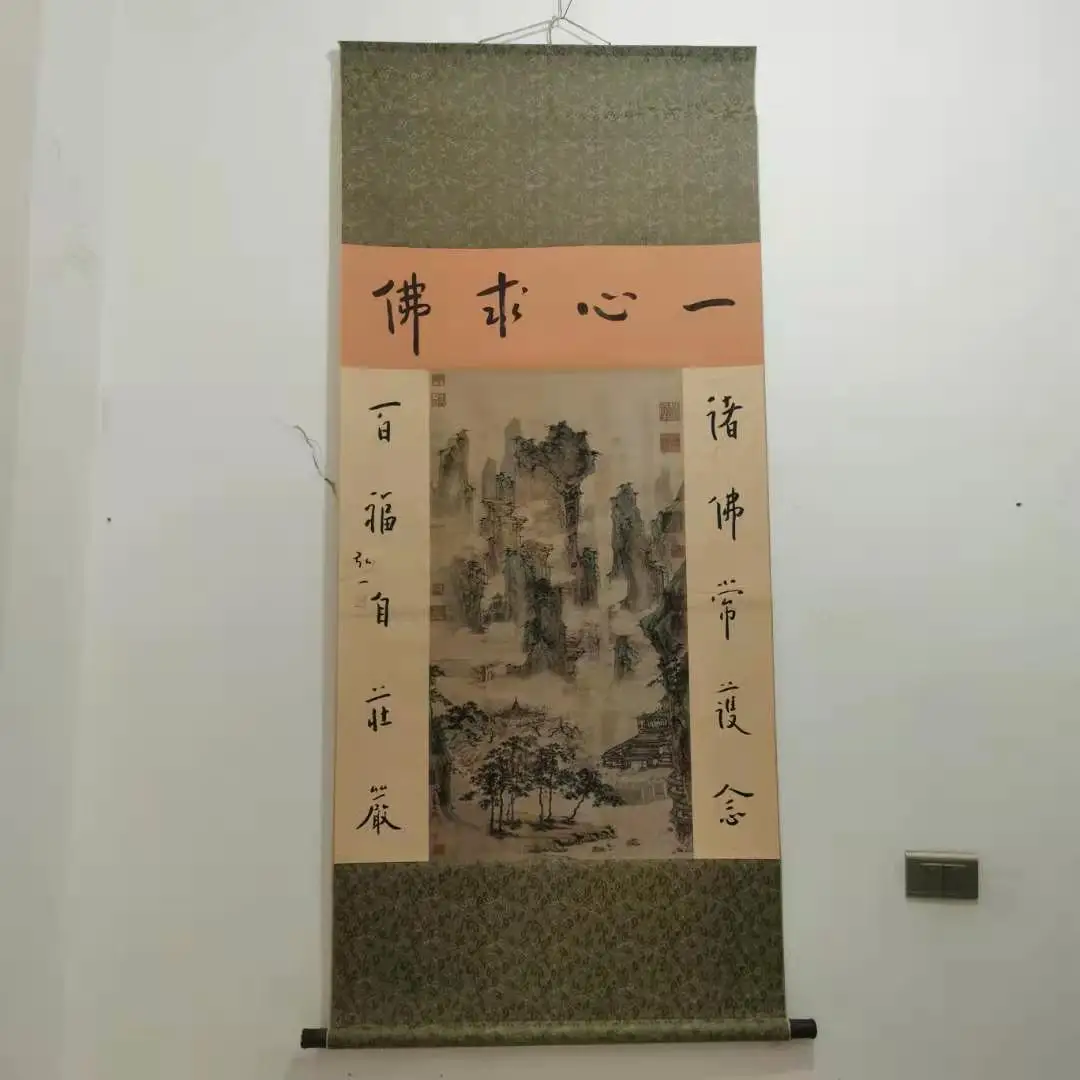 一心求佛
諸佛常護念
百福自莊嚴
弘一